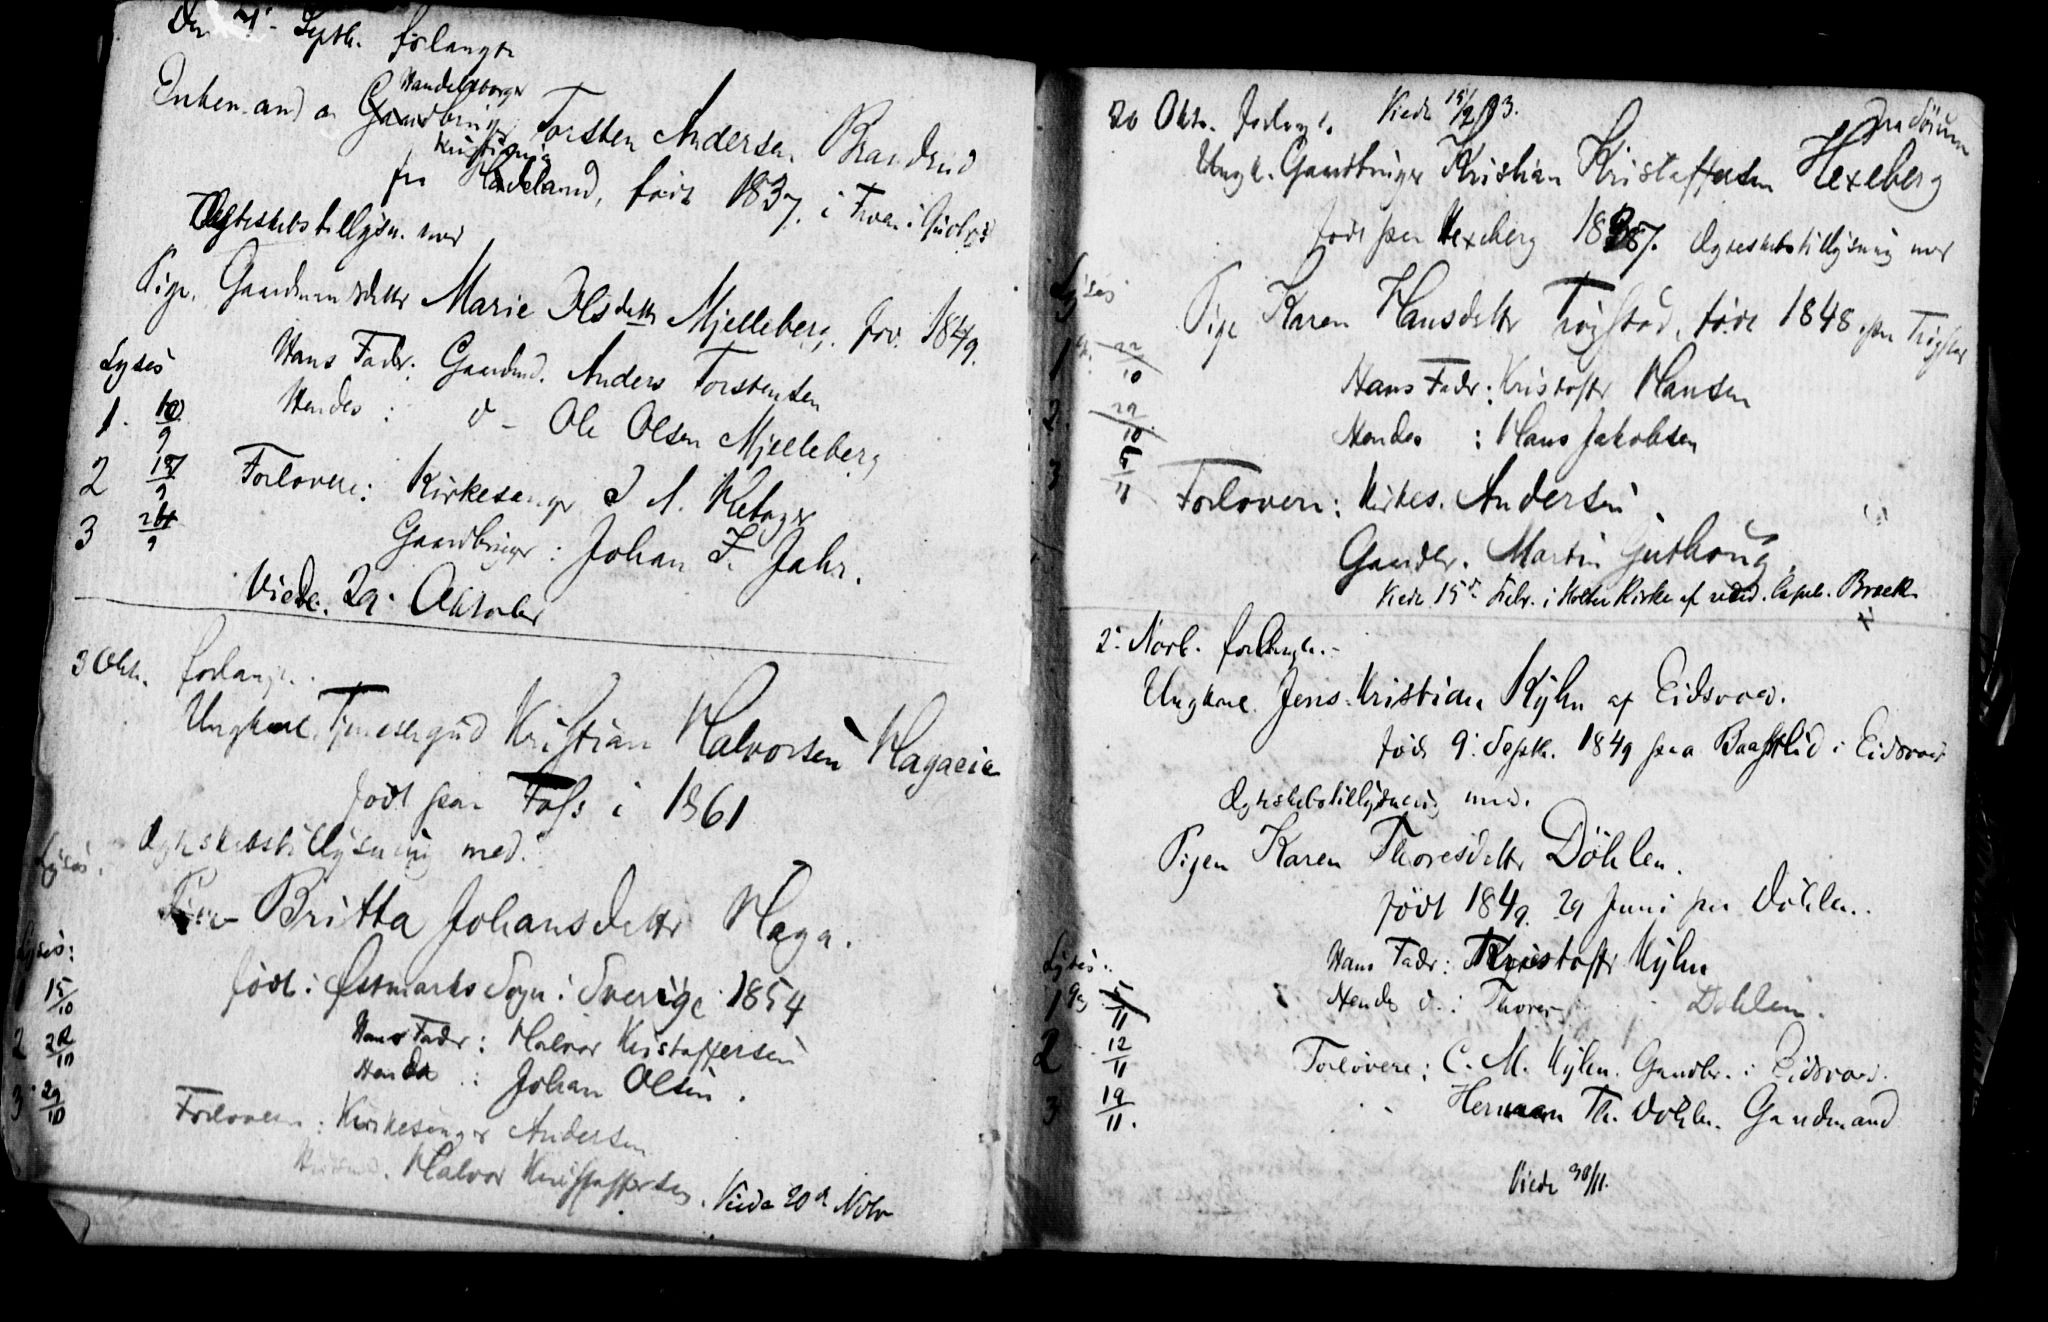 Den Septb. forlangte
Handelsborger
Enkemand Gaardbruger Torsten Andersen Brandrud
Kristiania
fra Hadeland, født 1837. i
Ægteskabstillysn. med
Pige, Gaardmandsdatter Marie Olsdatter Mjelleberg, 1849.
Hans Fader: Gaardmd. Anders Torstensen
Lyses
Hendes : d - Ole Olsen Mjelleberg
1. 10/9
2 17/9
3 24/9
Forlovere: Kirkesanger
Gaardbruger: Johan F. Jahr.
Viede: 29. Oktober
3 Okt. forlangte.
Ungkarl, Kristian Halvorsen Hagaeie
født paa Foss i 1861
Ægteskabstillysning med.
Lyses.
Pige Britta Johansdatter Haga.
Lyses:
født i Østmarks Sogn i Sverige 1854
1 15/10
Hans Fader: Halvor Kristoffersen
2 22/10
Hendes : Johan Olsen.
3 29/10
Forlovere: Kirkesanger Andersen
Halvor Kristoffersen. Viede 20d Novbr
20 Oktr. forlangte. Viede 15/2 83.
Ungk. Gaardbruger Kristian Kristoffersen Hexeberg
født paa Hexeberg 1857. Ægteskabstillysning med
Lyses
Pige Karen Hansdatter Trøgstad, født 1848 paa Trøgstad
1 22/10
Hans Fader: Kristoffer Hansen
2. 29/10
Hendes : Hans Jakobsen
3 5/11
Forlovere: Kirkes. Andersen
Gaardbr. Martin Juthoug
Viede 15d Febr. i Holter Kirke af resid. Capel. Brock
2. Novb. forlangte.-
Ungkarl Jens Kristian Kyln af Eidsvold.
født 9. Septb. 1849 paa i Eidsvold
Ægteskabstillysning med.
Pigen Karen Thoresdatter Döhlen.
født 1849. 29 Juni paa Döhlen.
Lyses.
Hans Fader: Kristoffer Kyln
1 5/11
Hendes d.: Thorer Döhlen.
2 12/11
Forlovere: C. M. Kyln. Gaardbr. i Eidsvold.
3 19/11.
Herman Th. Döhlen. Gaardmand
Viede 30/11.